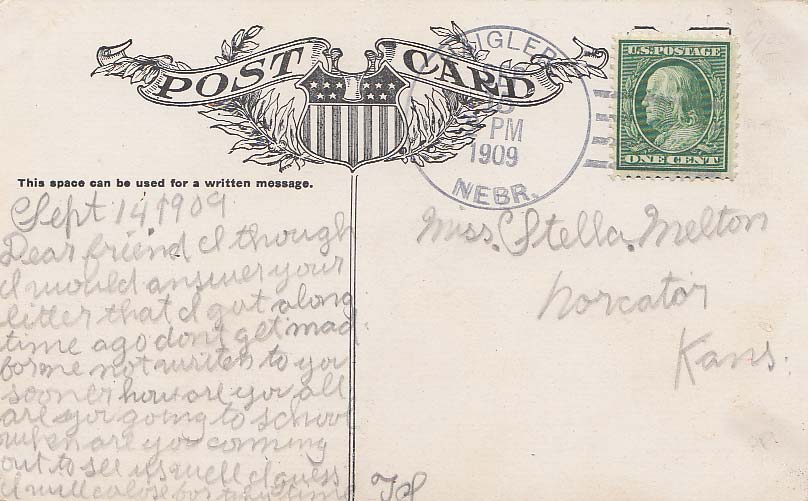 POST CARD
IGLER
PM
1909
NEBR.
U.S. POSTAGE
ONE CENT
This space can be used for a written message.
Sept 14 1909
Dear friend I though
I would answer your
litter that I got along
time ago dont get mad
for me not writen to you
sooner how are you all
are you going to school
when are you comming
out to see us well I guess
I will close for this time
Miss. Stella. Melton
Norcator
Kans.